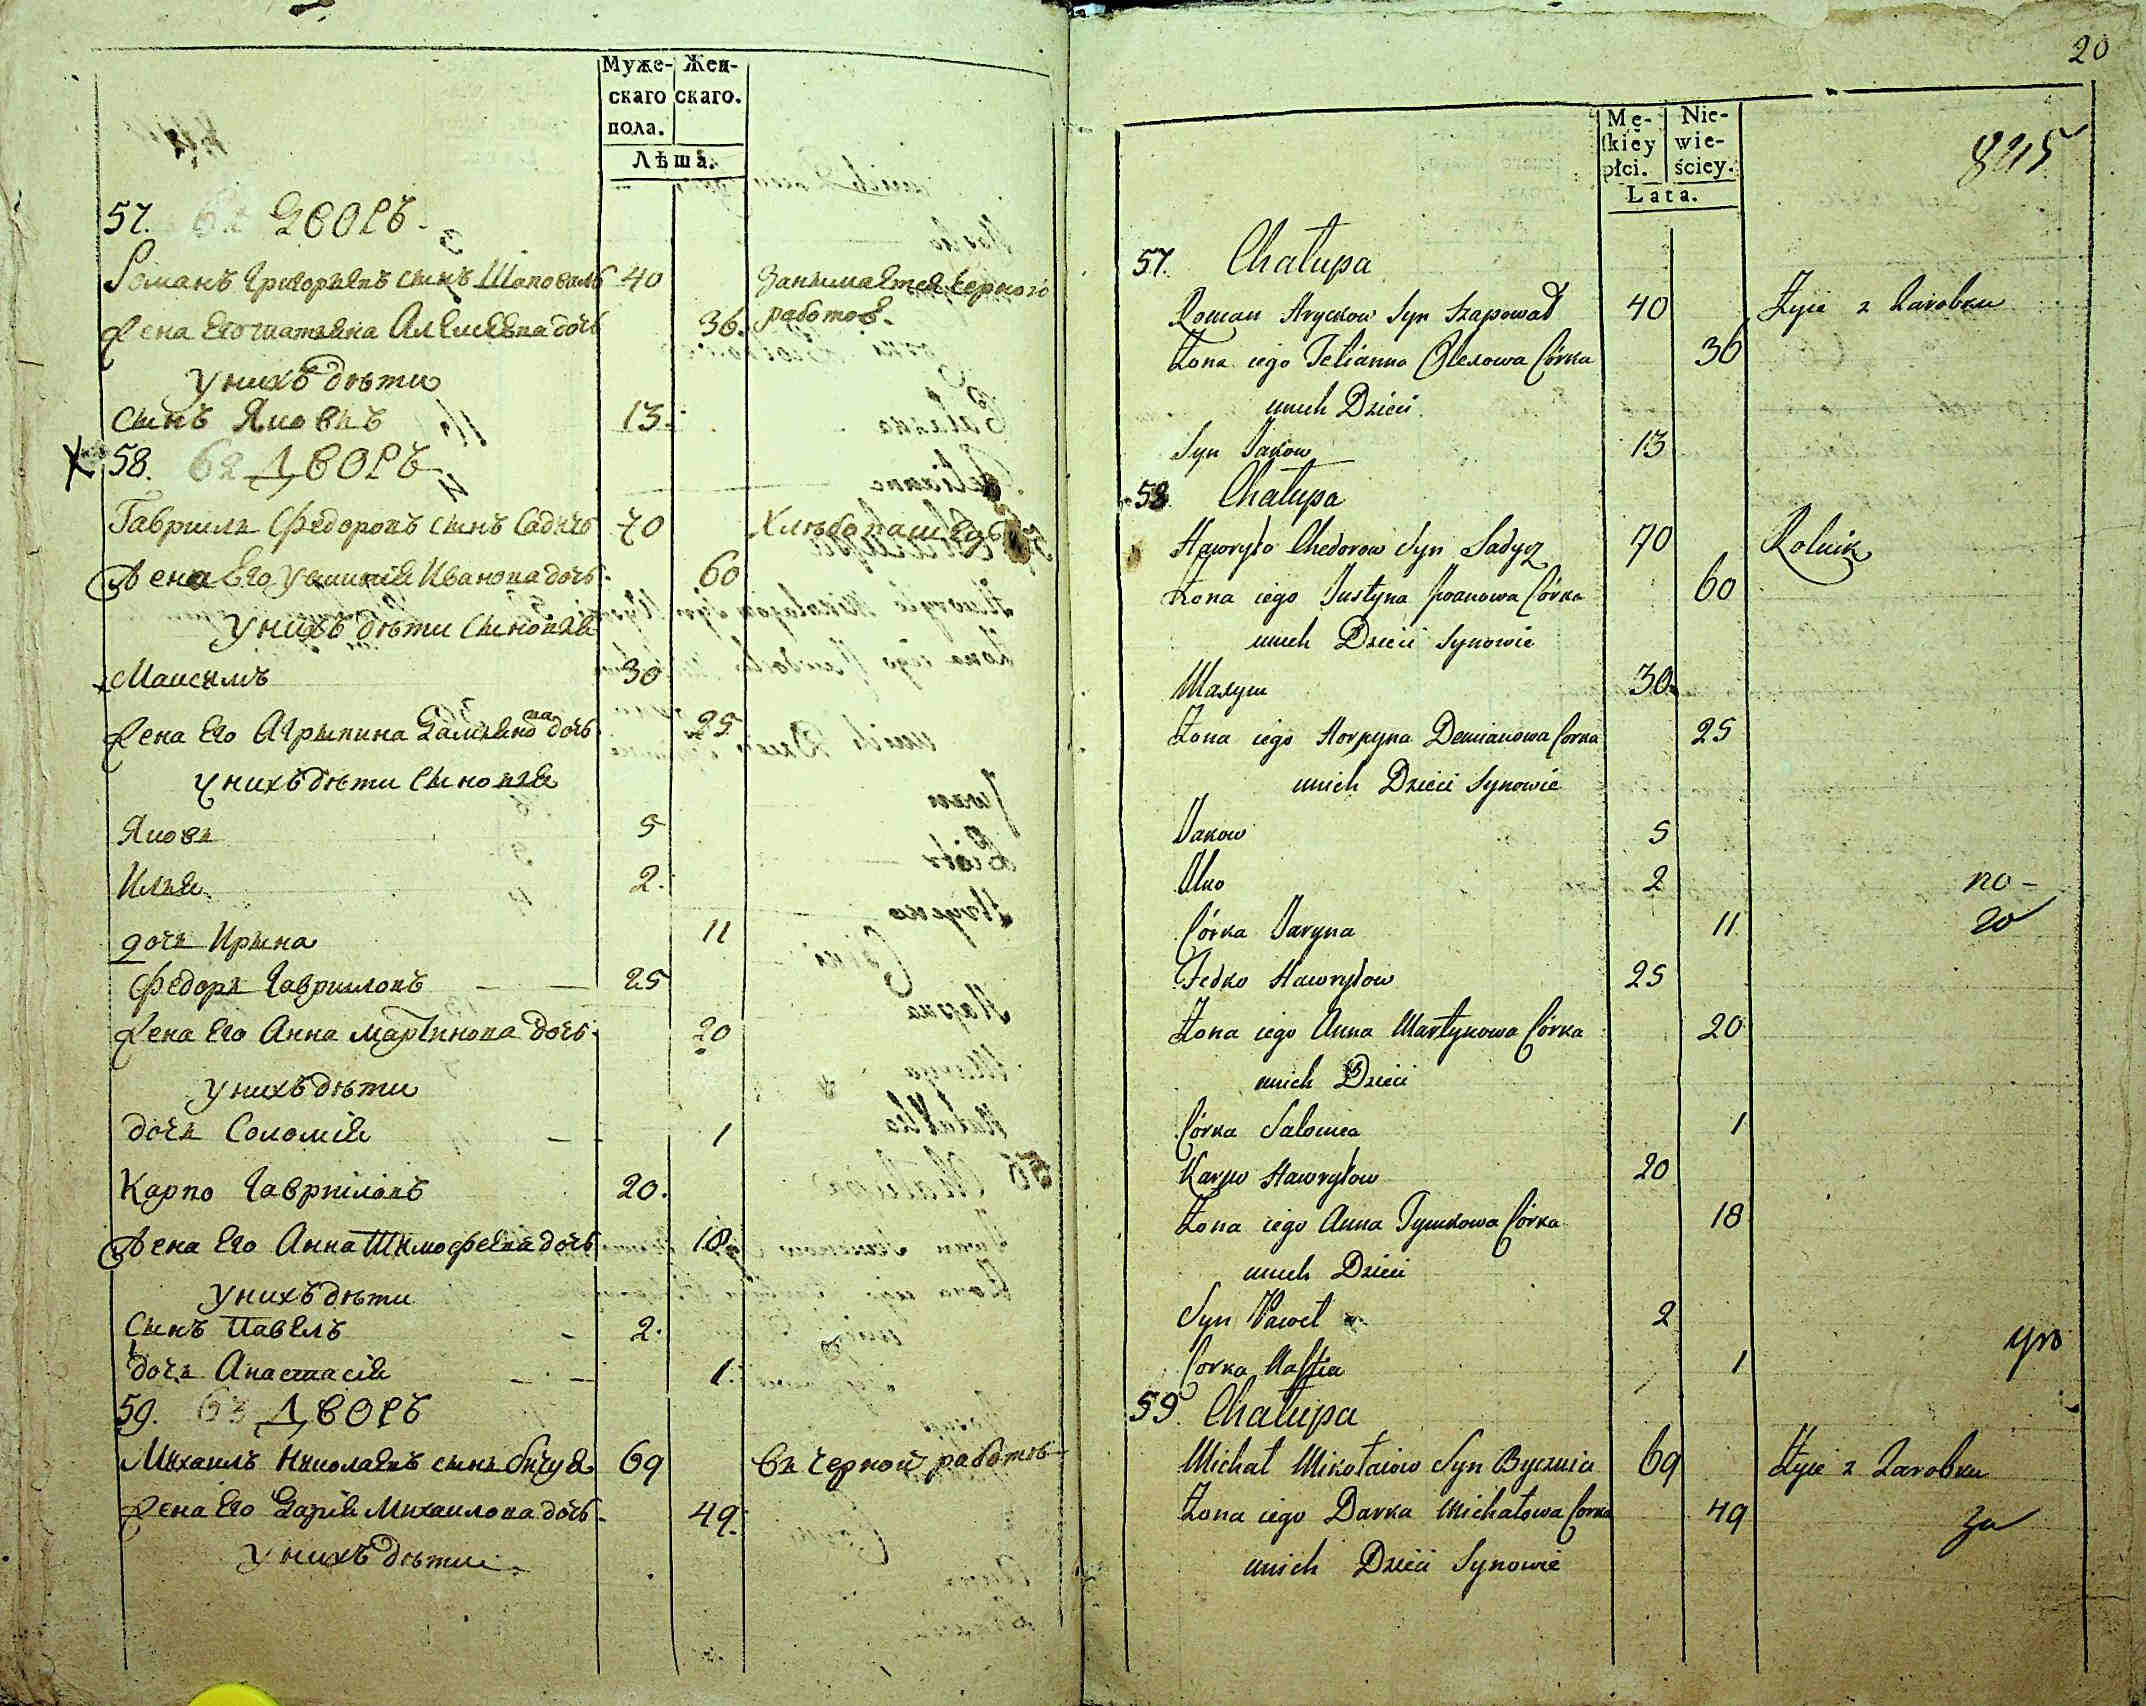 Муже-
скаго
пола.
Жен-
скаго.
Лѣта.
57. 61 Дворъ.
Романъ Григорьевъ сынъ Шаповалъ 40 Занимается черною
работою.
Жена Его татьяна Алексѣева дочь 36.
У нихъ дѣти
сынъ Яковъ 13.
58. 62 Дворъ
Гаврила Федоровъ сынъ Садычъ 70 Хлѣбопашецъ
Жена Его Устинія Иванова дочь. 60
У нихъ дѣти сыновья
Максимъ 30
Жена Его Агрыпина Дамьянова дочь 25
У нихъ дѣти сыновья
Яковъ 5
Илья 2.
дочь Ирына 11
Федоръ Гавриловъ 25
Жена Его Анна Мартинова дочь. 20
У нихъ дѣти
дочь Соломія 1
Карпо Гавриловъ 20.
Жена Его Анна Тимофеева дочь 18
У нихъ дѣти
Сынъ Павелъ 2.
дочь Анастасія 1.
59. 63 Дворъ
Михаилъ Николаевъ сынъ 69 въ черной работѣ
Жена Его Дарія Михаилова дочь. 49.
У нихъ дѣти.
20
Mę-
skiey
płci.
Nie-
wie-
ściey.
Lata.
57. Chałupa
Roman Hryckow Syn Szapował 40 Żyie z Zarobku
Żona iego Tetianna Olexowa Córka 36
unich Dzieci
Syn Jakow 13
58 Chałupa
Hawryło Chedorow Syn Sadycz 70 Rolnik
Żona iego Justyna Iwanowa Córka 60
unich Dzieci Synowie
30
Żona iego Horpyna Demianowa Corka 25
unich Dzieci Synowie
Jakow 5
Ilko 2 no-
Córka Jaryna 11 20
Fedko Hawryłow 25
Żona iego Anna Martynowa Córka 20
unich Dzieci
Córka Salomea 1
Karpo Hawryłow 20
Żona iego Anna Tymkowa Córka 18
unich Dzieci
Syn Paweł 2
Corka Nastia 1
59. Chałupa
Michał Mikołaiow Syn 69 Żyie z Zarobku
Żona iego Darka Michałowa Corka 49 za
unich Dzieci Synowie